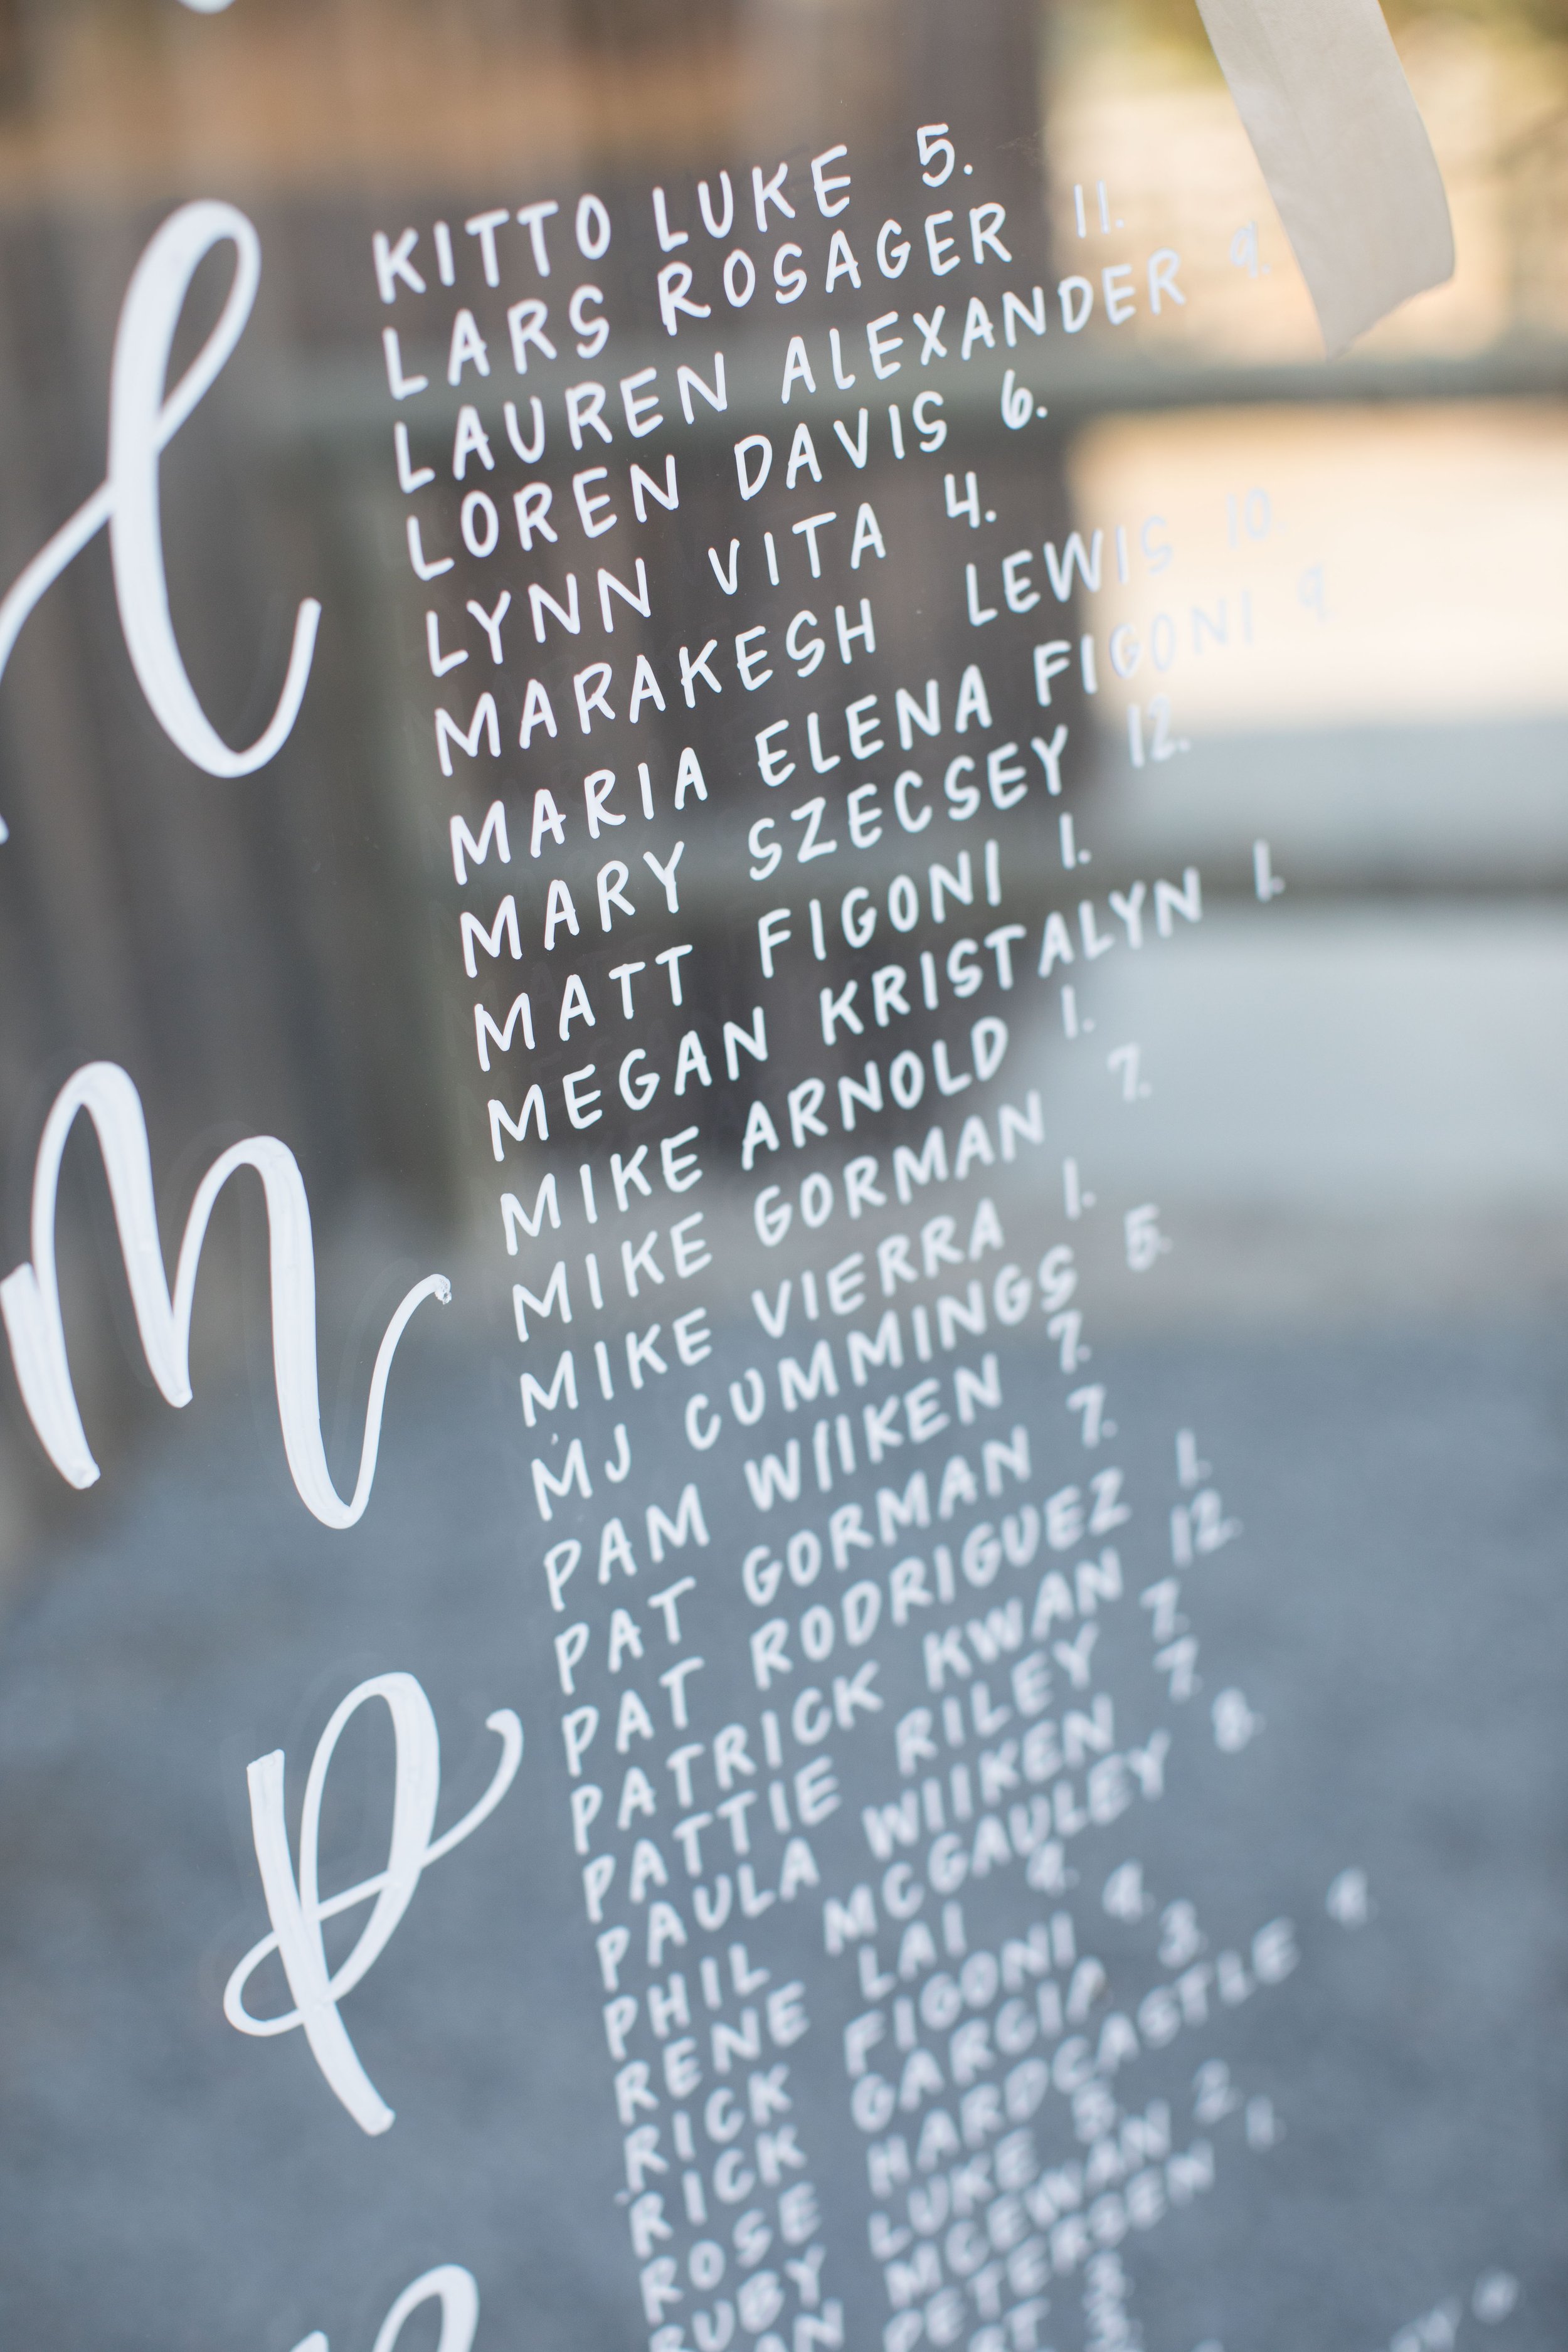 KITTO LUKE 5.
l LARS ROSAGER 11.
LAUREN ALEXANDER 9.
LOREN DAVIS 6.
LYNN VITA 4.
MARAKESH LEWIS 10.
MARIA ELENA FIGONI 9.
MARY SZECSEY 12.
MATT FIGONI 1.
m MEGAN KRISTALYN 1.
MIKE ARNOLD 1.
MIKE GORMAN 7.
MIKE VIERRA 1.
MJ CUMMINGS 5.
PAM WIIKEN 7.
PAT GORMAN 7.
p PAT RODRIGUEZ 1.
PATRICK KWAN 12.
PATTIE RILEY 7.
PAULA WIIKEN 7.
PHIL MCGAULEY 8.
RENE LAI
RICK FIGONI 4.
RICK GARCIA 3.
ROSE HARDCASTLE
RUBY LUKE 5.
MCEWAN 2.
PETERSEN 1.